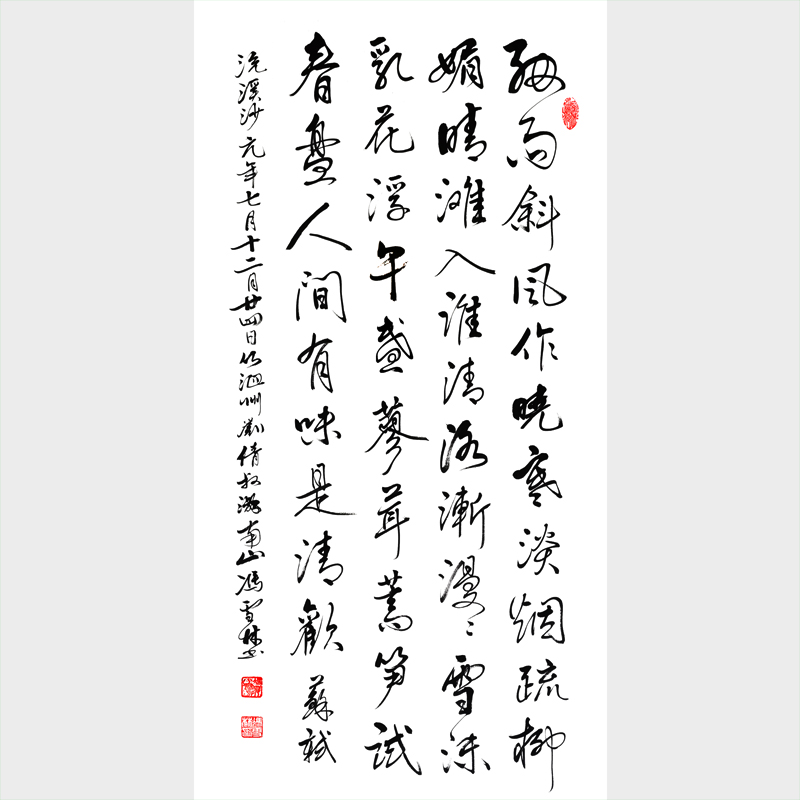 細雨斜風作曉寒淡烟疏柳
媚晴灘入淮清洛漸漫〻雪沫
乳花浮午盞蓼茸蒿笋試
春盤人間有味是清歡 蘇軾
浣溪沙元年七月十二月廿四日從泗州劉倩叔遊南山馮雪林书